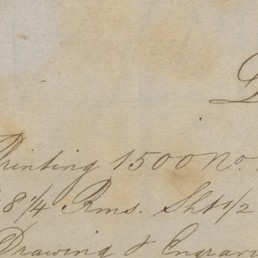 Printing 1500 No.
8 1/4 Rms. Sht 1/2
Drawing & Engravi